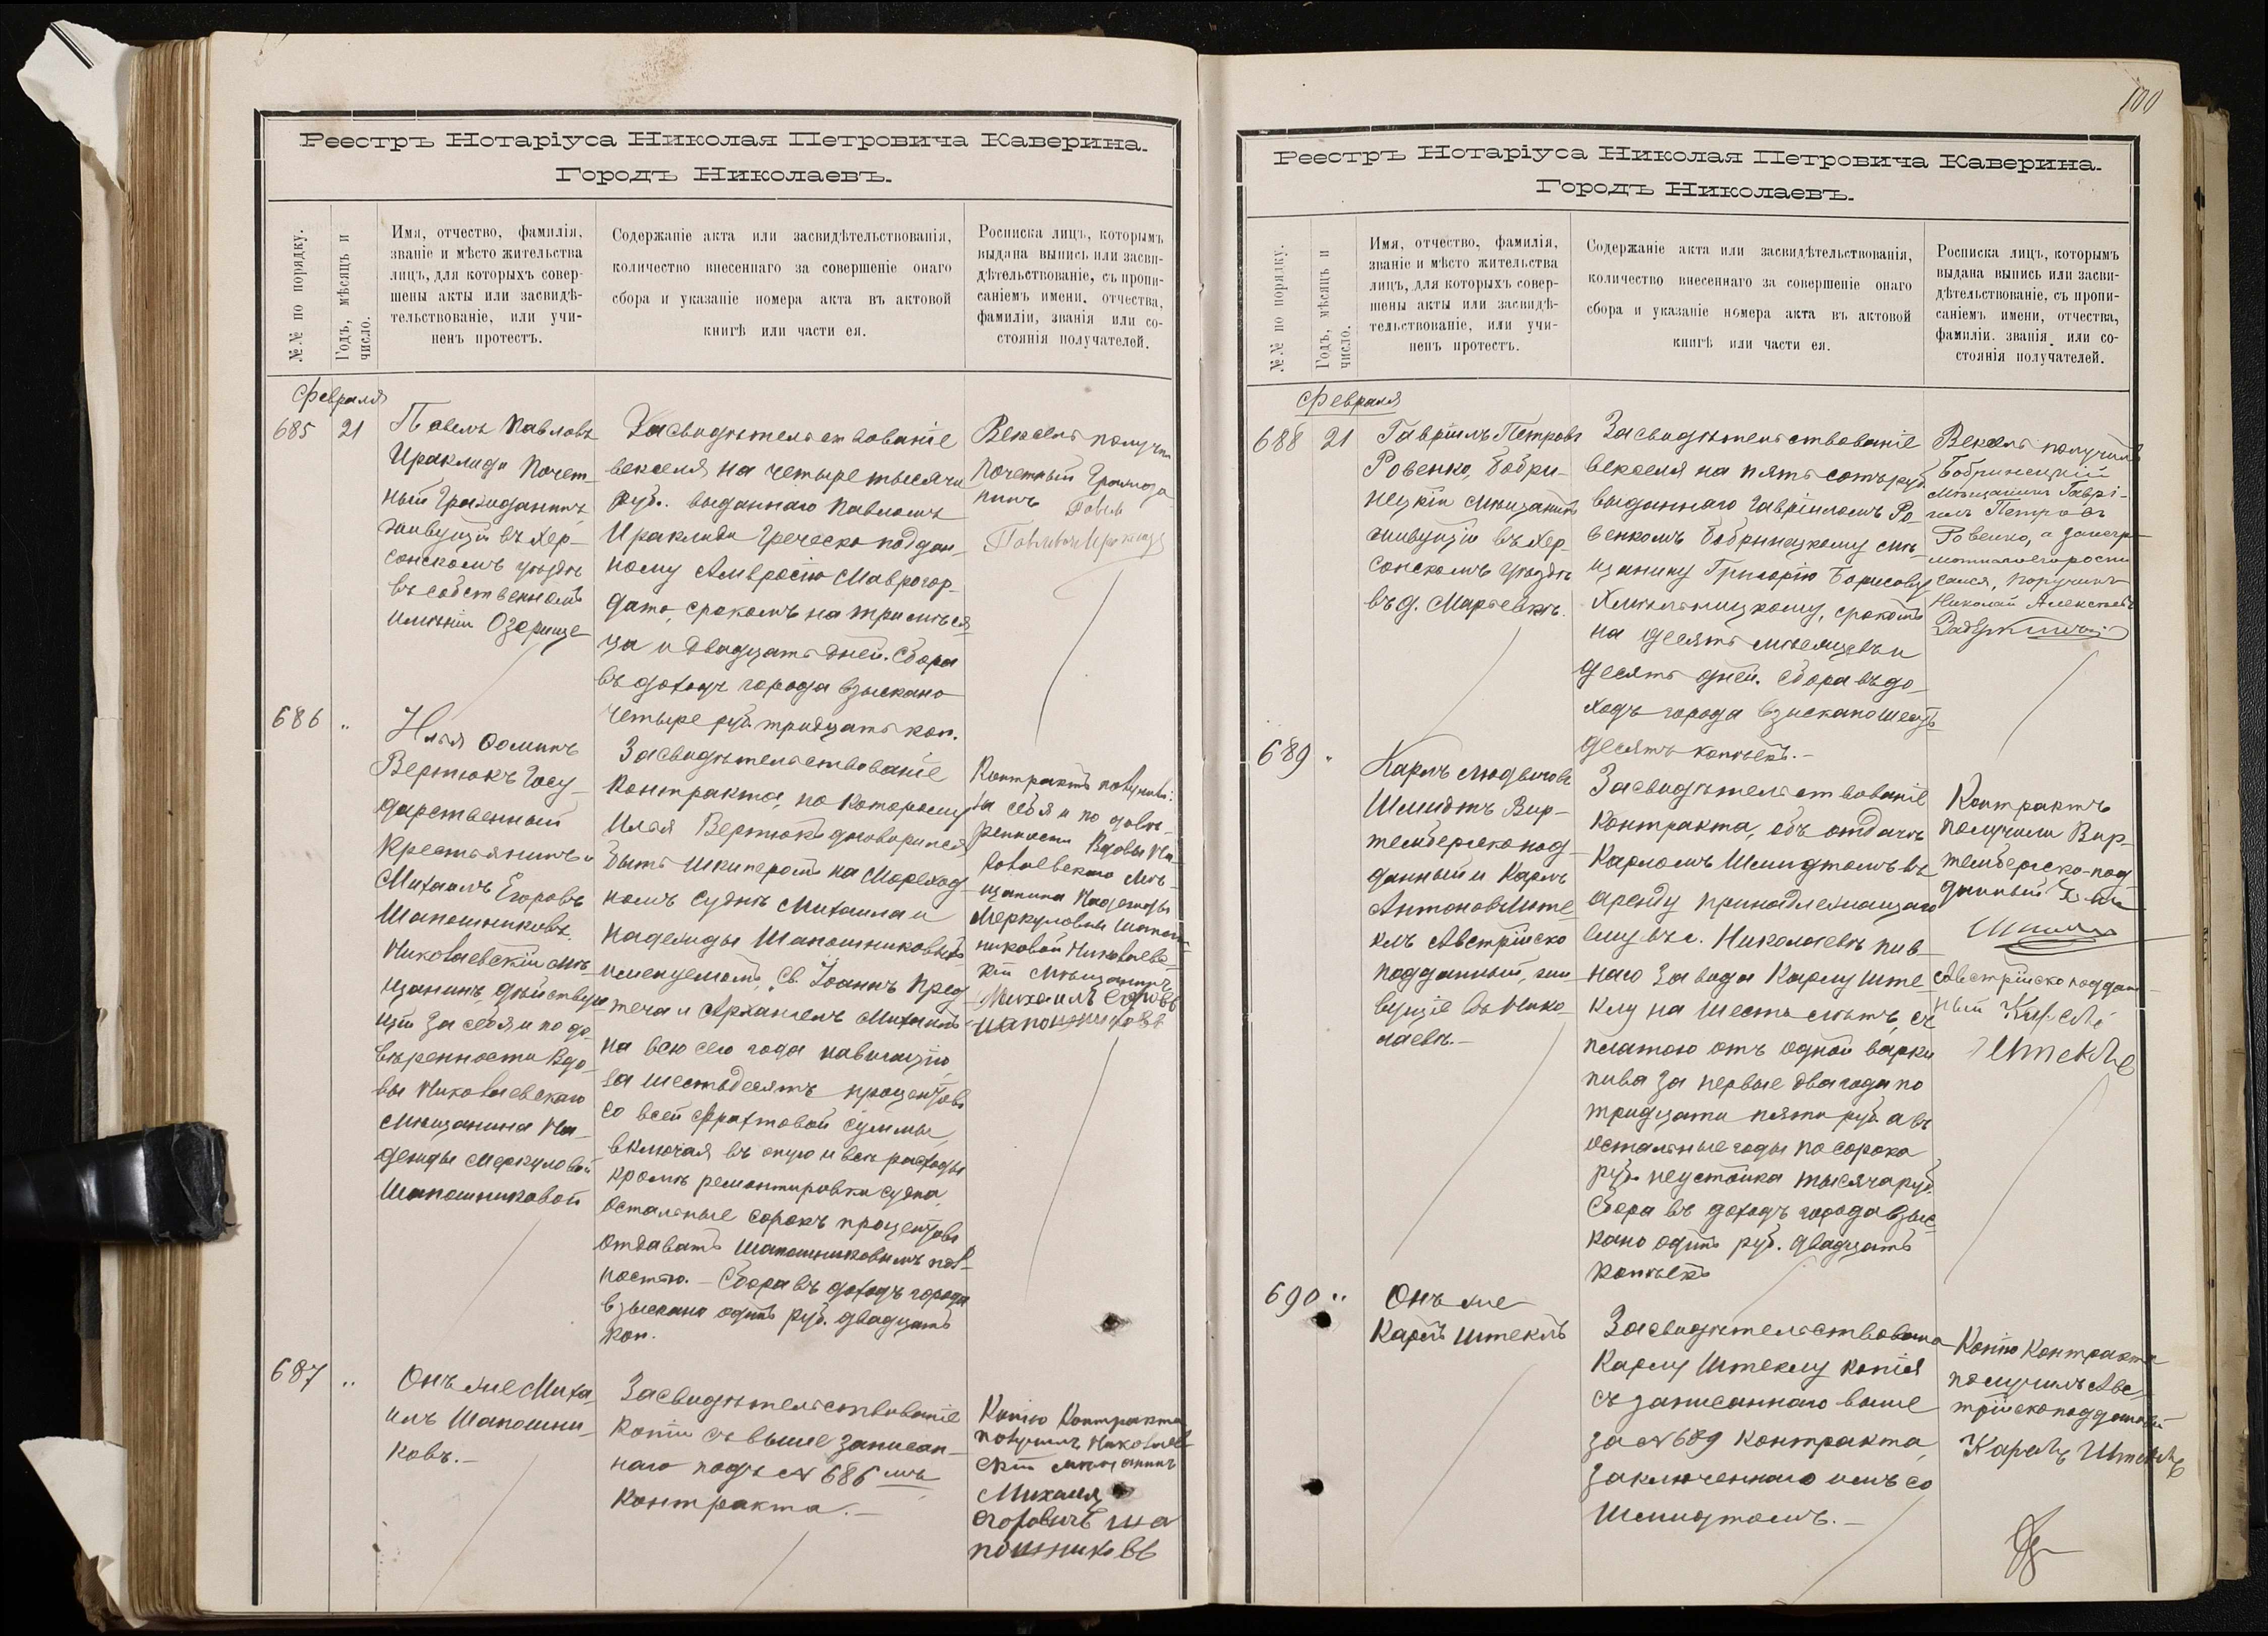 Реестръ Нотаріуса Николая Петровича Каверина.
Городъ Николаевъ.
№№ по порядку.
Годъ, мѣсяцъ и
число.
Имя, отчество, фамилія,
званіе и мѣсто жительства
лицъ, для которыхъ совер-
шены акты или засвидѣ-
тельствованіе, или учи-
ненъ протестъ.
Содержаніе акта или засвидѣтельствованія,
количество внесеннаго за совершеніе онаго
сбора и указаніе номера акта въ актовой
книгѣ или части ея.
Росписка лицъ, которымъ
выдана выпись или засви-
дѣтельствованіе, съ пропи-
саніемъ имени, отчества,
фамиліи, званія или со-
стоянія получателей.
Февраля
685
21
Павелъ Павловъ
Ираклиди Почет-
ный Гражданинъ,
живущій въ Хер-
сонскомъ уѣздѣ
въ собственномъ
имѣніи Озерище
Засвидѣтельствованіе
векселя на четыре тысячи
руб. выданнаго Павломъ
Ираклиди Греческо поддан-
ному Амвросію Маврогор-
дато, срокомъ на три мѣся-
ца и двадцать дней. Сбора
въ доходъ города взыскано
четыре руб. тридцать коп.
Вексель получилъ
Почетный Гражда
нинъ Павелъ
686
"
Илья Ѳоминъ
Вертюкъ Госу-
дарственный
Крестьянинъ и
Михаилъ Егоровъ
Шапошниковъ,
Николаевскій мѣ-
щанинъ, дѣйствую
щій за себя и по до-
вѣренности Вдо-
вы Николаевскаго
мѣщанина На-
дежды Меркуловой
Шапошниковой
Засвидѣтельствованіе
контракта, по которому
Илья Вертюкъ договорился
быть шкиперомъ на Мореход-
номъ суднѣ Михаила и
Надежды Шапошниковыхъ
именуемомъ, "Св. Іоаннъ Пред-
теча и Архангелъ Михаилъ"
на всю сего года навигацію,
за шестьдесятъ процентовъ
со всей фрахтовой суммы,
включая въ оную и всѣ расходы
кромѣ ремонтировки судна,
остальные сорокъ процентовъ
отдавать Шапошниковымъ пол-
ностью. – Сбора въ доходъ города
взыскано одинъ руб. двадцать
коп.
Контрактъ получилъ
за себя и по довѣ-
ренности Вдовы Ни-
колаевскаго мѣ-
щанина Надежды
Меркуловны Шапош
никовой Николаевс-
кій мѣщанинъ
Михаилъ Егоровъ
Шапошниковъ
687
"
Онъ же Миха-
илъ Шапошни-
ковъ. –
Засвидѣтельствованіе
копіи съ выше записан-
наго подъ № 686 мъ
контракта. –
Копію Контракта
получилъ Николаев
скій мѣщанинъ
Михаил
Егоровичъ Ша
пошниковъ
100
Реестръ Нотаріуса Николая Петровича Каверина.
Городъ Николаевъ.
№№ по порядку.
Годъ, мѣсяцъ и
число.
Имя, отчество, фамилія,
званіе и мѣсто жительства
лицъ, для которыхъ совер-
шены акты или засвидѣ-
тельствованіе, или учи-
ненъ протестъ.
Содержаніе акта или засвидѣтельствованія,
количество внесеннаго за совершеніе онаго
сбора и указаніе номера акта въ актовой
книгѣ или части ея.
Росписка лицъ, которымъ
выдана выпись или засви-
дѣтельствованіе, съ пропи-
саніемъ имени, отчества,
фамиліи, званія или со-
стоянія получателей.
Февраля
688
21
Гавріилъ Петровъ
Ровенко, Бобри-
нецкій мѣщанинъ
живущій въ Хер-
сонскомъ уѣздѣ
въ д. Марьевкѣ.
Засвидѣтельствованіе
векселя на пять сотъ руб.
выданнаго Гавріиломъ Ро-
венкомъ Бобринецкому мѣ-
щанину Григорію Борисову
Хмѣльницкому, срокомъ
на десять мѣсяцевъ и
десять дней. Сбора въ до-
ходъ города взыскано шесть
десятъ копѣекъ. –
Вексель получилъ
Бобринецкій
мѣщанинъ Гаврі-
илъ Петровъ
Ровенко, а за негр-
росписался, поручикъ
Николай Алексѣевъ
689
"
Карлъ Людвиговъ
Шмидтъ Вир-
тембергско под-
данный и Карлъ
Антоновъ Ште-
клъ Австрійско
подданный, жи-
вущіе въ Нико-
лаевѣ. –
Засвидѣтельствованіе
контракта, объ отдачѣ
Карломъ Шмидтомъ въ
аренду принадлежащаго
ему въ г. Николаевѣ пив-
наго завода Карлу Ште-
клу на шесть лѣтъ, съ
платою отъ одной варки
пива за первые два года по
тридцати пяти руб. а въ
остальные годы по сорока
руб. неустойка тысяча руб.
Сбора въ доходъ города взыс-
кано одинъ руб. двадцать
копѣекъ
Контрактъ
получили Вир-
тембергско-под-
данный
Австрійско поддан-
ный Карлъ
Штеклъ
690
"
Онъ же
Карлъ Штеклъ
Засвидѣтельствована
Карлу Штеклу копія
съ записаннаго выше
за № 689 контракта,
заключеннаго имъ со
Шмидтомъ. –
Копію Контракта
получилъ Авс-
трійско подданный
Карлъ Штеклъ